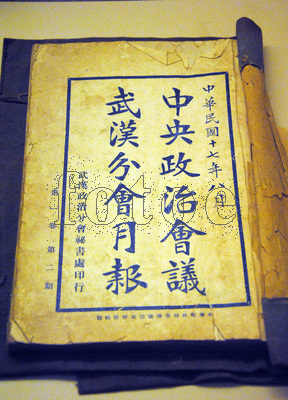 中華民國十七年八月
中央政治會議
武漢分會月報
武漢政治分會祕書處印行
第一卷 第二期
fotoe